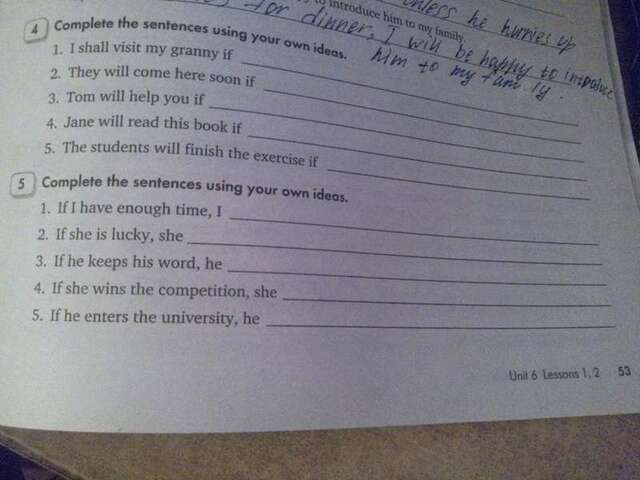 to introduce him to my family.
unless he hurries up
for dinner, I will be happy to introduce
him to my family.
4 Complete the sentences using your own ideas.
1. I shall visit my granny if
2. They will come here soon if
3. Tom will help you if
4. Jane will read this book if
5. The students will finish the exercise if
5 Complete the sentences using your own ideas.
1. If I have enough time, I
2. If she is lucky, she
3. If he keeps his word, he
4. If she wins the competition, she
5. If he enters the university, he
Unit 6 Lessons 1, 2 53